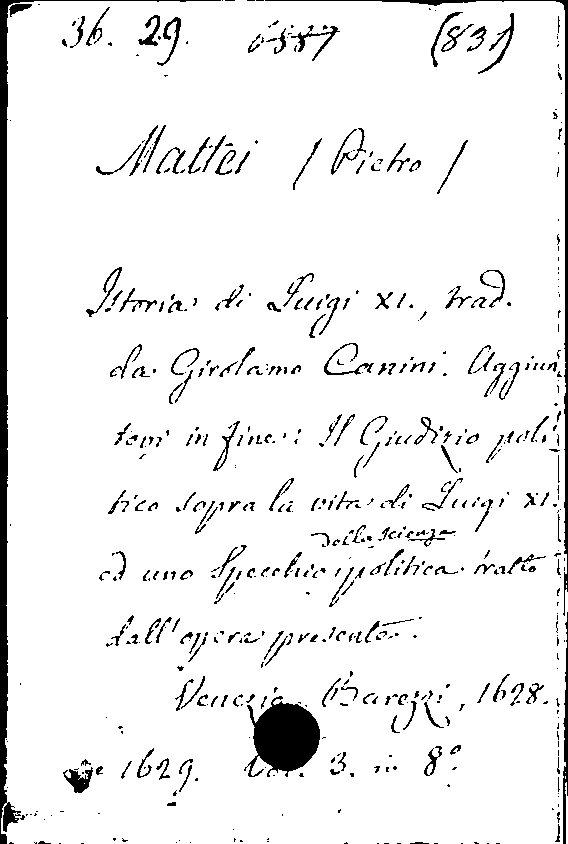 36. 29. 6887 (831)
Mattei / Pietro /
Istoria di Luigi XI., trad.
da Girolamo Canini. Aggiun
tovi in fine: Il Giudizio poli
tico sopra la vita di Luigi XI.
della scienza
ed uno Specchio politica tratto
dall'opera presente.
Venezia Barezzi, 1628.
e 1629. Vol. 3. in 8º